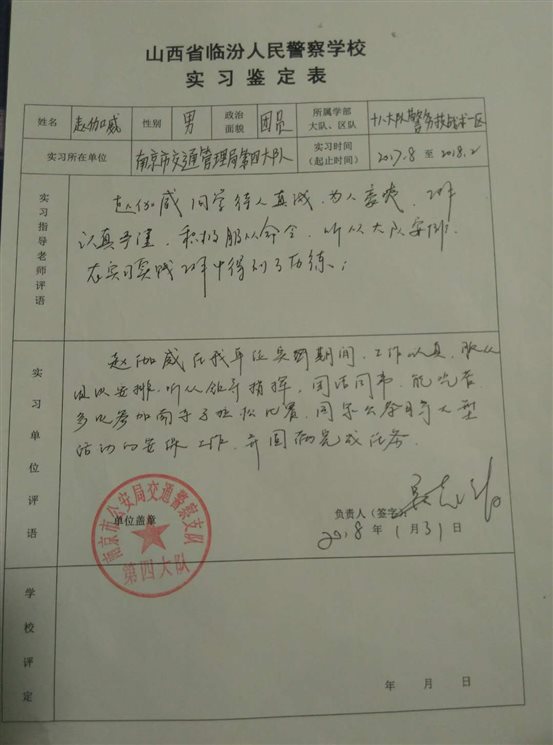 山西省临汾人民警察学校
实习鉴定表
姓名 赵伽威 性别 男 政治面貌 团员 所属学部大队、区队 十八大队警务技战术一区
实习所在单位 南京市交通管理局第四大队 实习时间(起止时间) 2017.8 至 2018.2
实习指导老师评语
赵伽威同学待人真诚,为人豪爽,工作
认真负责,积极服从命令,听从大队安排,
在实习实践工作中得到了历练。
实习单位评语
赵伽威在我单位实习期间,工作认真,服从
组织安排,听从领导指挥,团结同事,能完成
多次参加南京马拉松比赛,国家公祭日等大型
活动的安保工作,并圆满完成任务。
单位盖章
南京市公安局交通警察支队
第四大队
负责人(签字)
2018年1月31日
学校评定
年 月 日